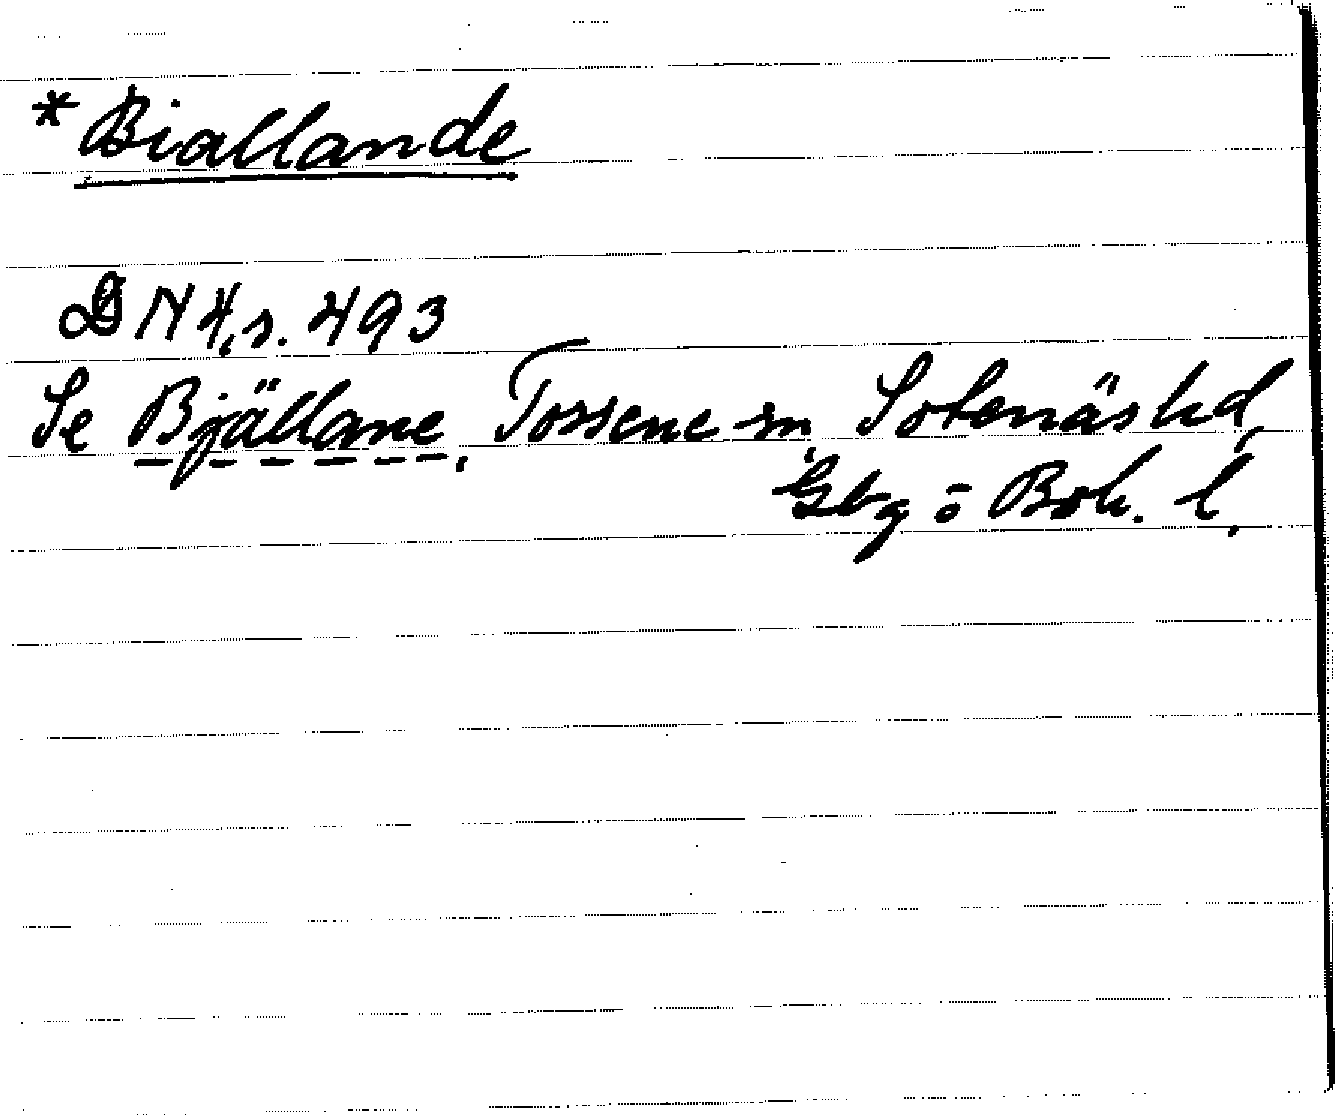 *Biallande
DN 4, s. 493
Se Bjällane, Tossene sn, Sotenäs hd,
Gbg o Boh. l.